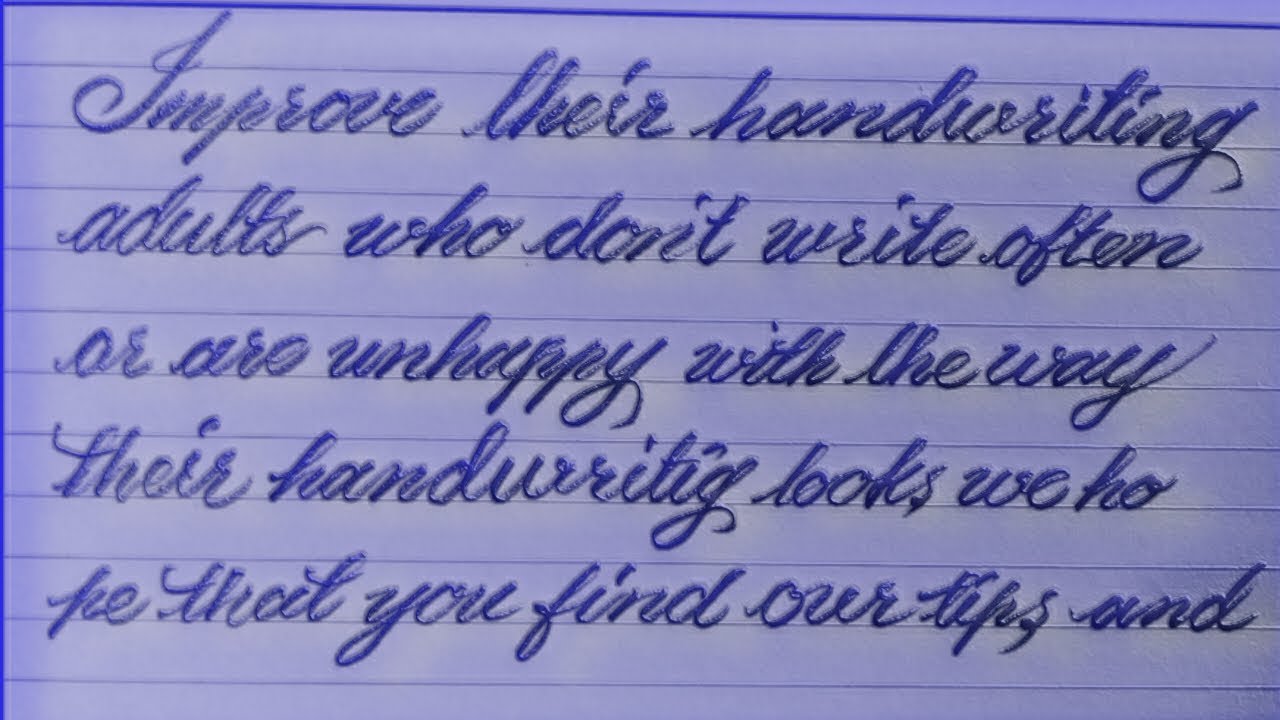 Improve their handwriting
adults who don't write often
or are unhappy with the way
their handwritig looks, we ho
pe that you find our tips, and